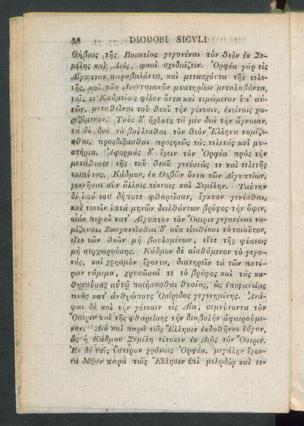 38 DIODORI SICVLI
Θήβαις τῆς Βοιωτίας γεγονέναι τὸν θεὸν ἐκ Σε-
μέλης καὶ Διὸς, φασὶ σχεδιάζειν. Ὀρφέα γὰρ εἰς
Αἴγυπτον παραβαλόντα, καὶ μετασχόντα τῆς τελε-
τῆς, καὶ τῶν Διονυσιακῶν μυστηρίων μεταλαβόντα,
τοῖς τε Καδμείοις φίλον ὄντα καὶ τιμώμενον ὑπ' αὐ-
τῶν, μεταθεῖναι τοῦ θεοῦ τὴν γένεσιν, ἐκείνοις χα-
ριζόμενον. Τοὺς δ' ὄχλους τὰ μὲν διὰ τὴν ἄγνοιαν,
τὰ δὲ διὰ τὸ βούλεσθαι τὸν θεὸν Ἕλληνα νομίζε-
σθαι, προσδέξασθαι προσηνῶς τὰς τελετὰς καὶ μυ-
στήρια. Ἀφορμὰς δ' ἔχειν τὸν Ὀρφέα πρὸς τὴν
μετάθεσιν τῆς τοῦ θεοῦ γενέσεώς τε καὶ τελετῆς
τοιαύτας. Κάδμον, ἐκ Θηβῶν ὄντα τῶν Αἰγυπτίων,
γεννῆσαι σὺν ἄλλοις τέκνοις καὶ Σεμέλην. Ταύτην
δὲ ὑπό του δήποτε φθαρεῖσαν, ἔγκυον γενέσθαι,
καὶ τεκεῖν ἑπτὰ μηνῶν διελθόντων βρέφος τὴν ὄψιν,
οἷόν περ οἱ κατ' Αἴγυπτον τὸν Ὄσιριν γεγονέναι νο-
μίζουσι. Ζωογονεῖσθαι δ' οὐκ εἰωθέναι τὸ τοιοῦτον,
εἴτε τῶν θεῶν μὴ βουλομένων, εἴτε τῆς φύσεως
μὴ συγχωρούσης. Κάδμον δὲ αἰσθόμενον τὸ γεγο-
νὸς, καὶ χρησμὸν ἔχοντα, διατηρεῖν τὰ τῶν πατέ-
ρων νόμιμα, χρυσῶσαί τε τὸ βρέφος καὶ τὰς κα-
θηκούσας αὐτῷ ποιήσασθαι θυσίας, ὡς ἐπιφανείας
τινὸς κατ' ἀνθρώπους Ὀσίριδος γεγενημένης. Ἀνά-
ψαι δὲ καὶ τὴν γένεσιν εἰς Δία, σεμνύνοντα τὸν
Ὄσιριν καὶ τῆς φθαρείσης τὴν διαβολὴν ἀφαιρούμε-
νον. Διὸ καὶ παρὰ τοῖς Ἕλλησιν ἐκδοθῆναι λόγον,
ὡς ἡ Κάδμου Σεμέλη τέτοκεν ἐκ Διὸς τὸν Ὄσιριν.
Ἐν δὲ τοῖς ὕστερον χρόνοις Ὀρφέα, μεγάλην ἔχον-
τα δόξαν παρὰ τοῖς Ἕλλησιν ἐπὶ μελῳδίᾳ καὶ τε-